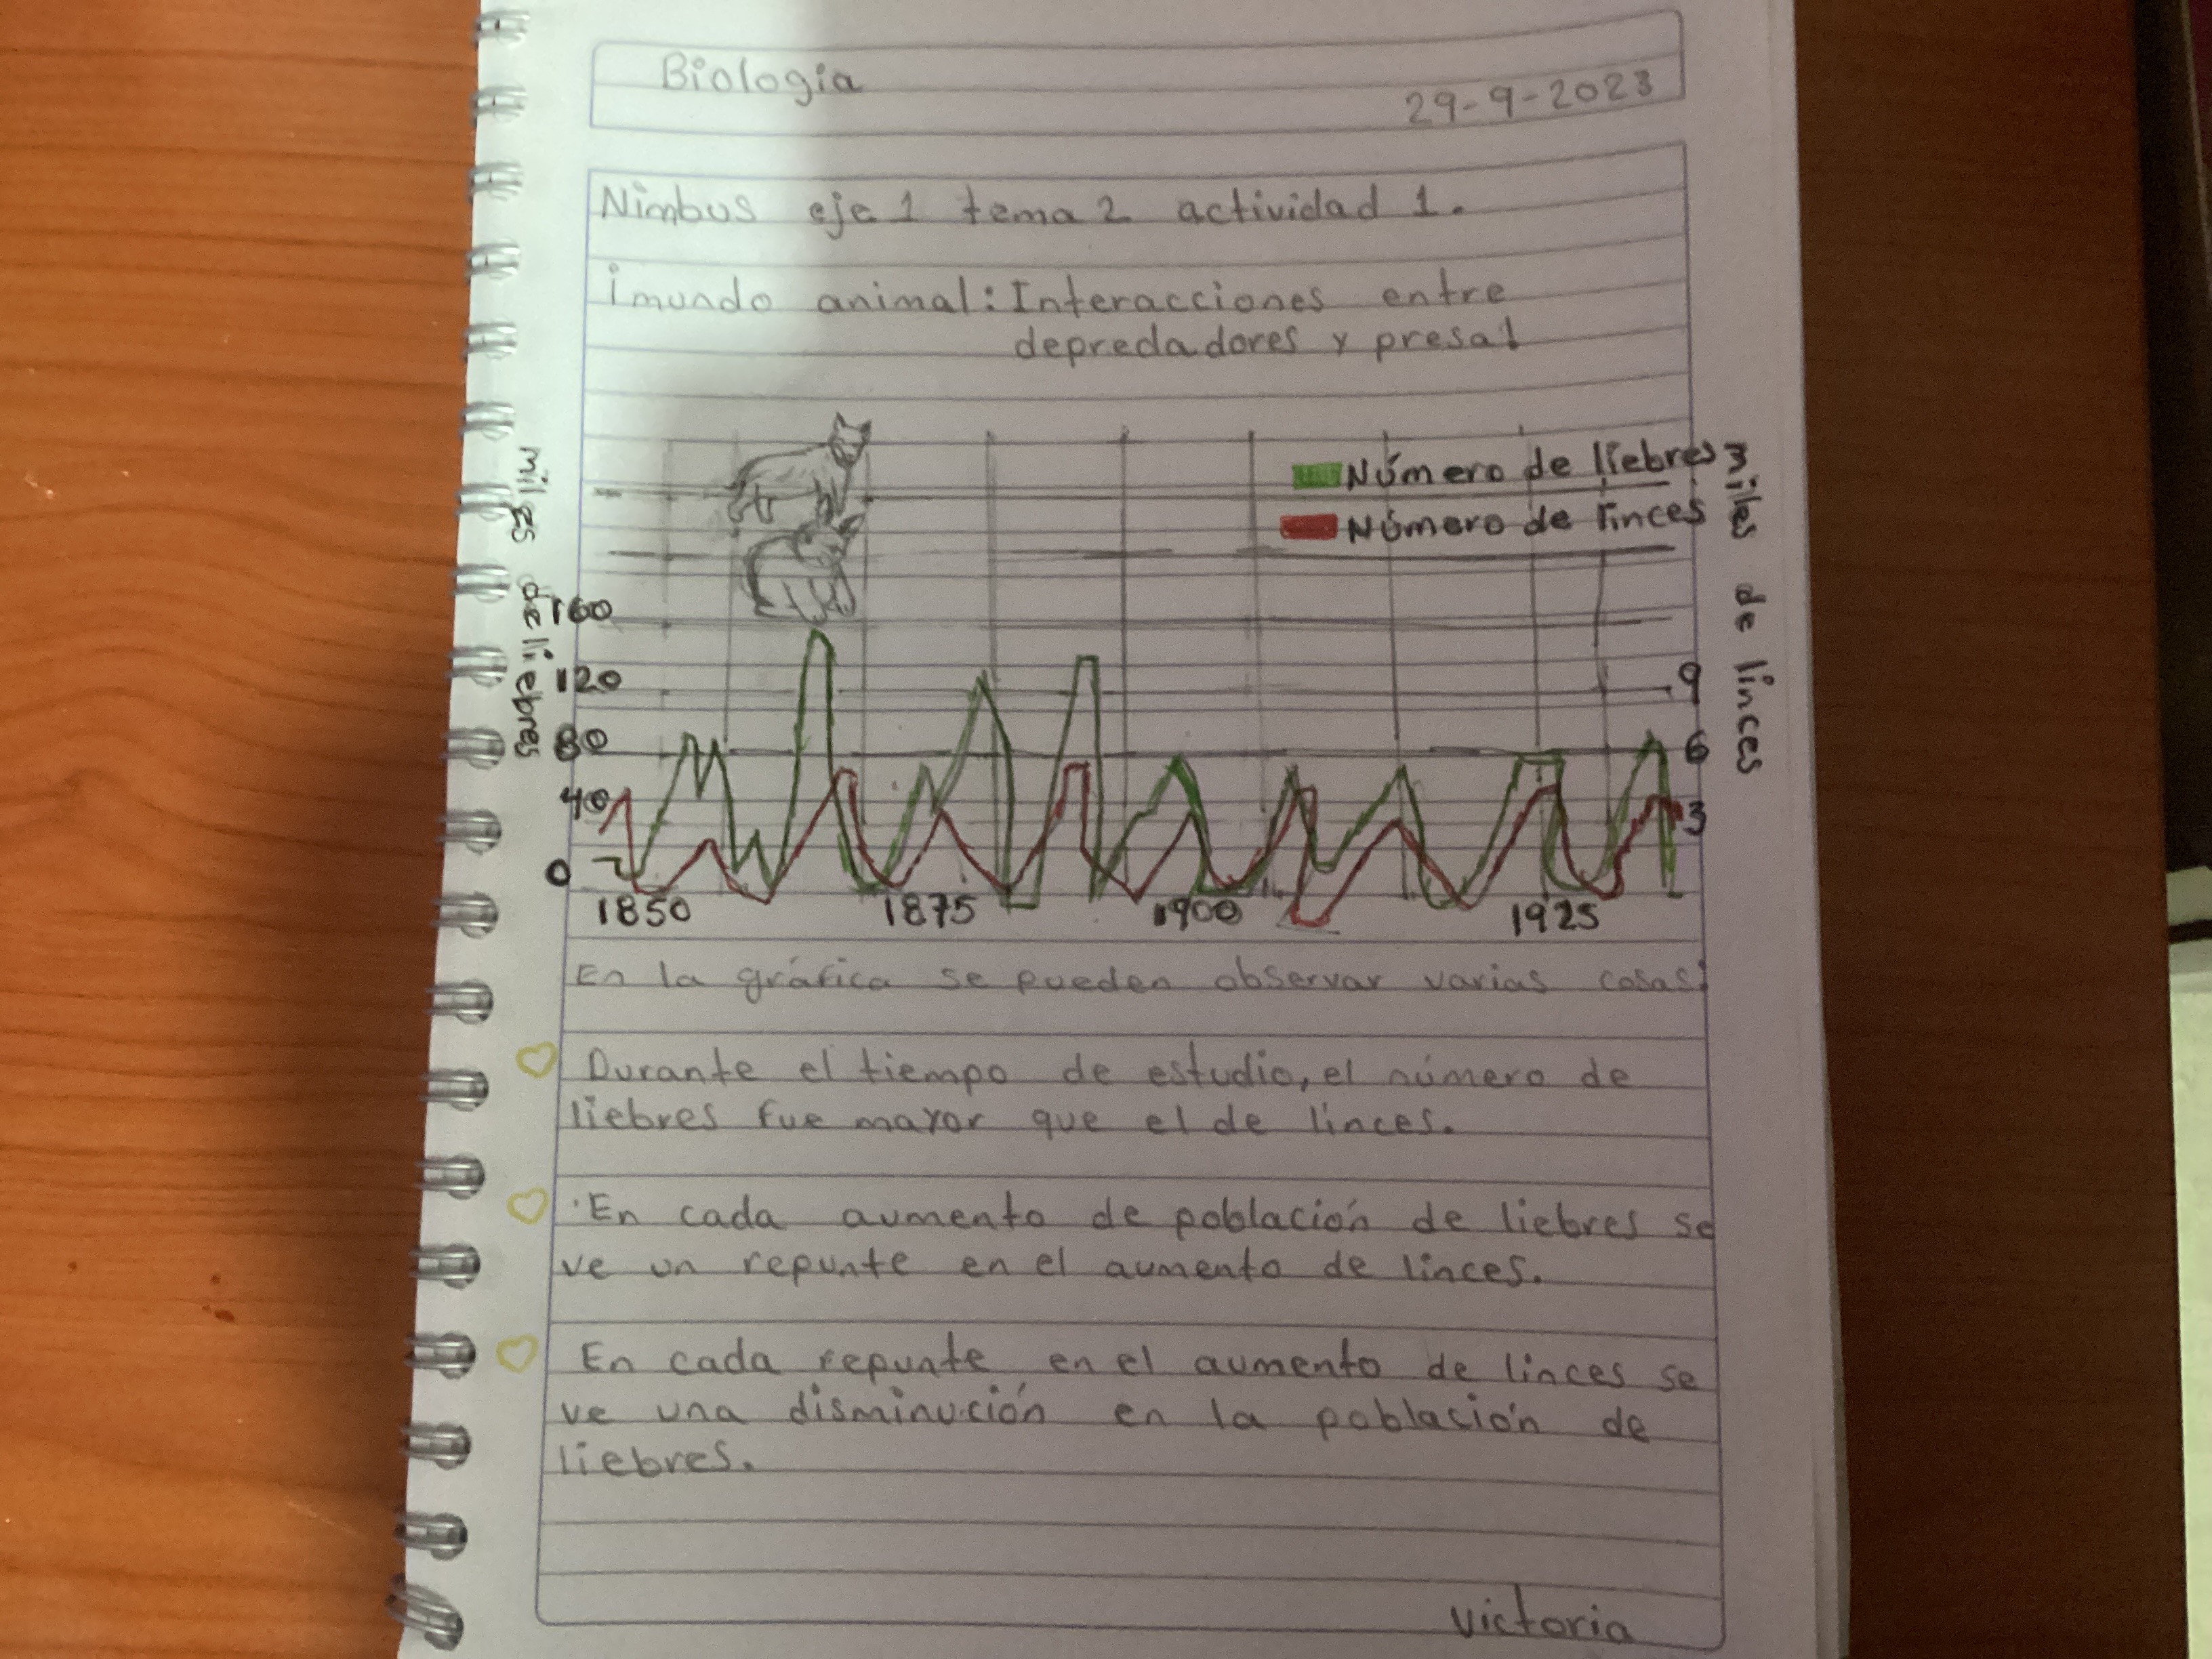 Biologia
29-9-2023
Nimbus eje 1 tema 2 actividad 1.
¡mundo animal: Interacciones entre
depredadores y presa!
Número de liebres
Número de linces
miles de liebres
160
120
80
40
0
miles de linces
9
6
3
1850 1875 1900 1925
En la gráfica se pueden observar varias cosas:
Durante el tiempo de estudio, el número de
liebres fue mayor que el de linces.
En cada aumento de población de liebres se
ve un repunte en el aumento de linces.
En cada repunte en el aumento de linces se
ve una disminución en la población de
liebres.
Victoria